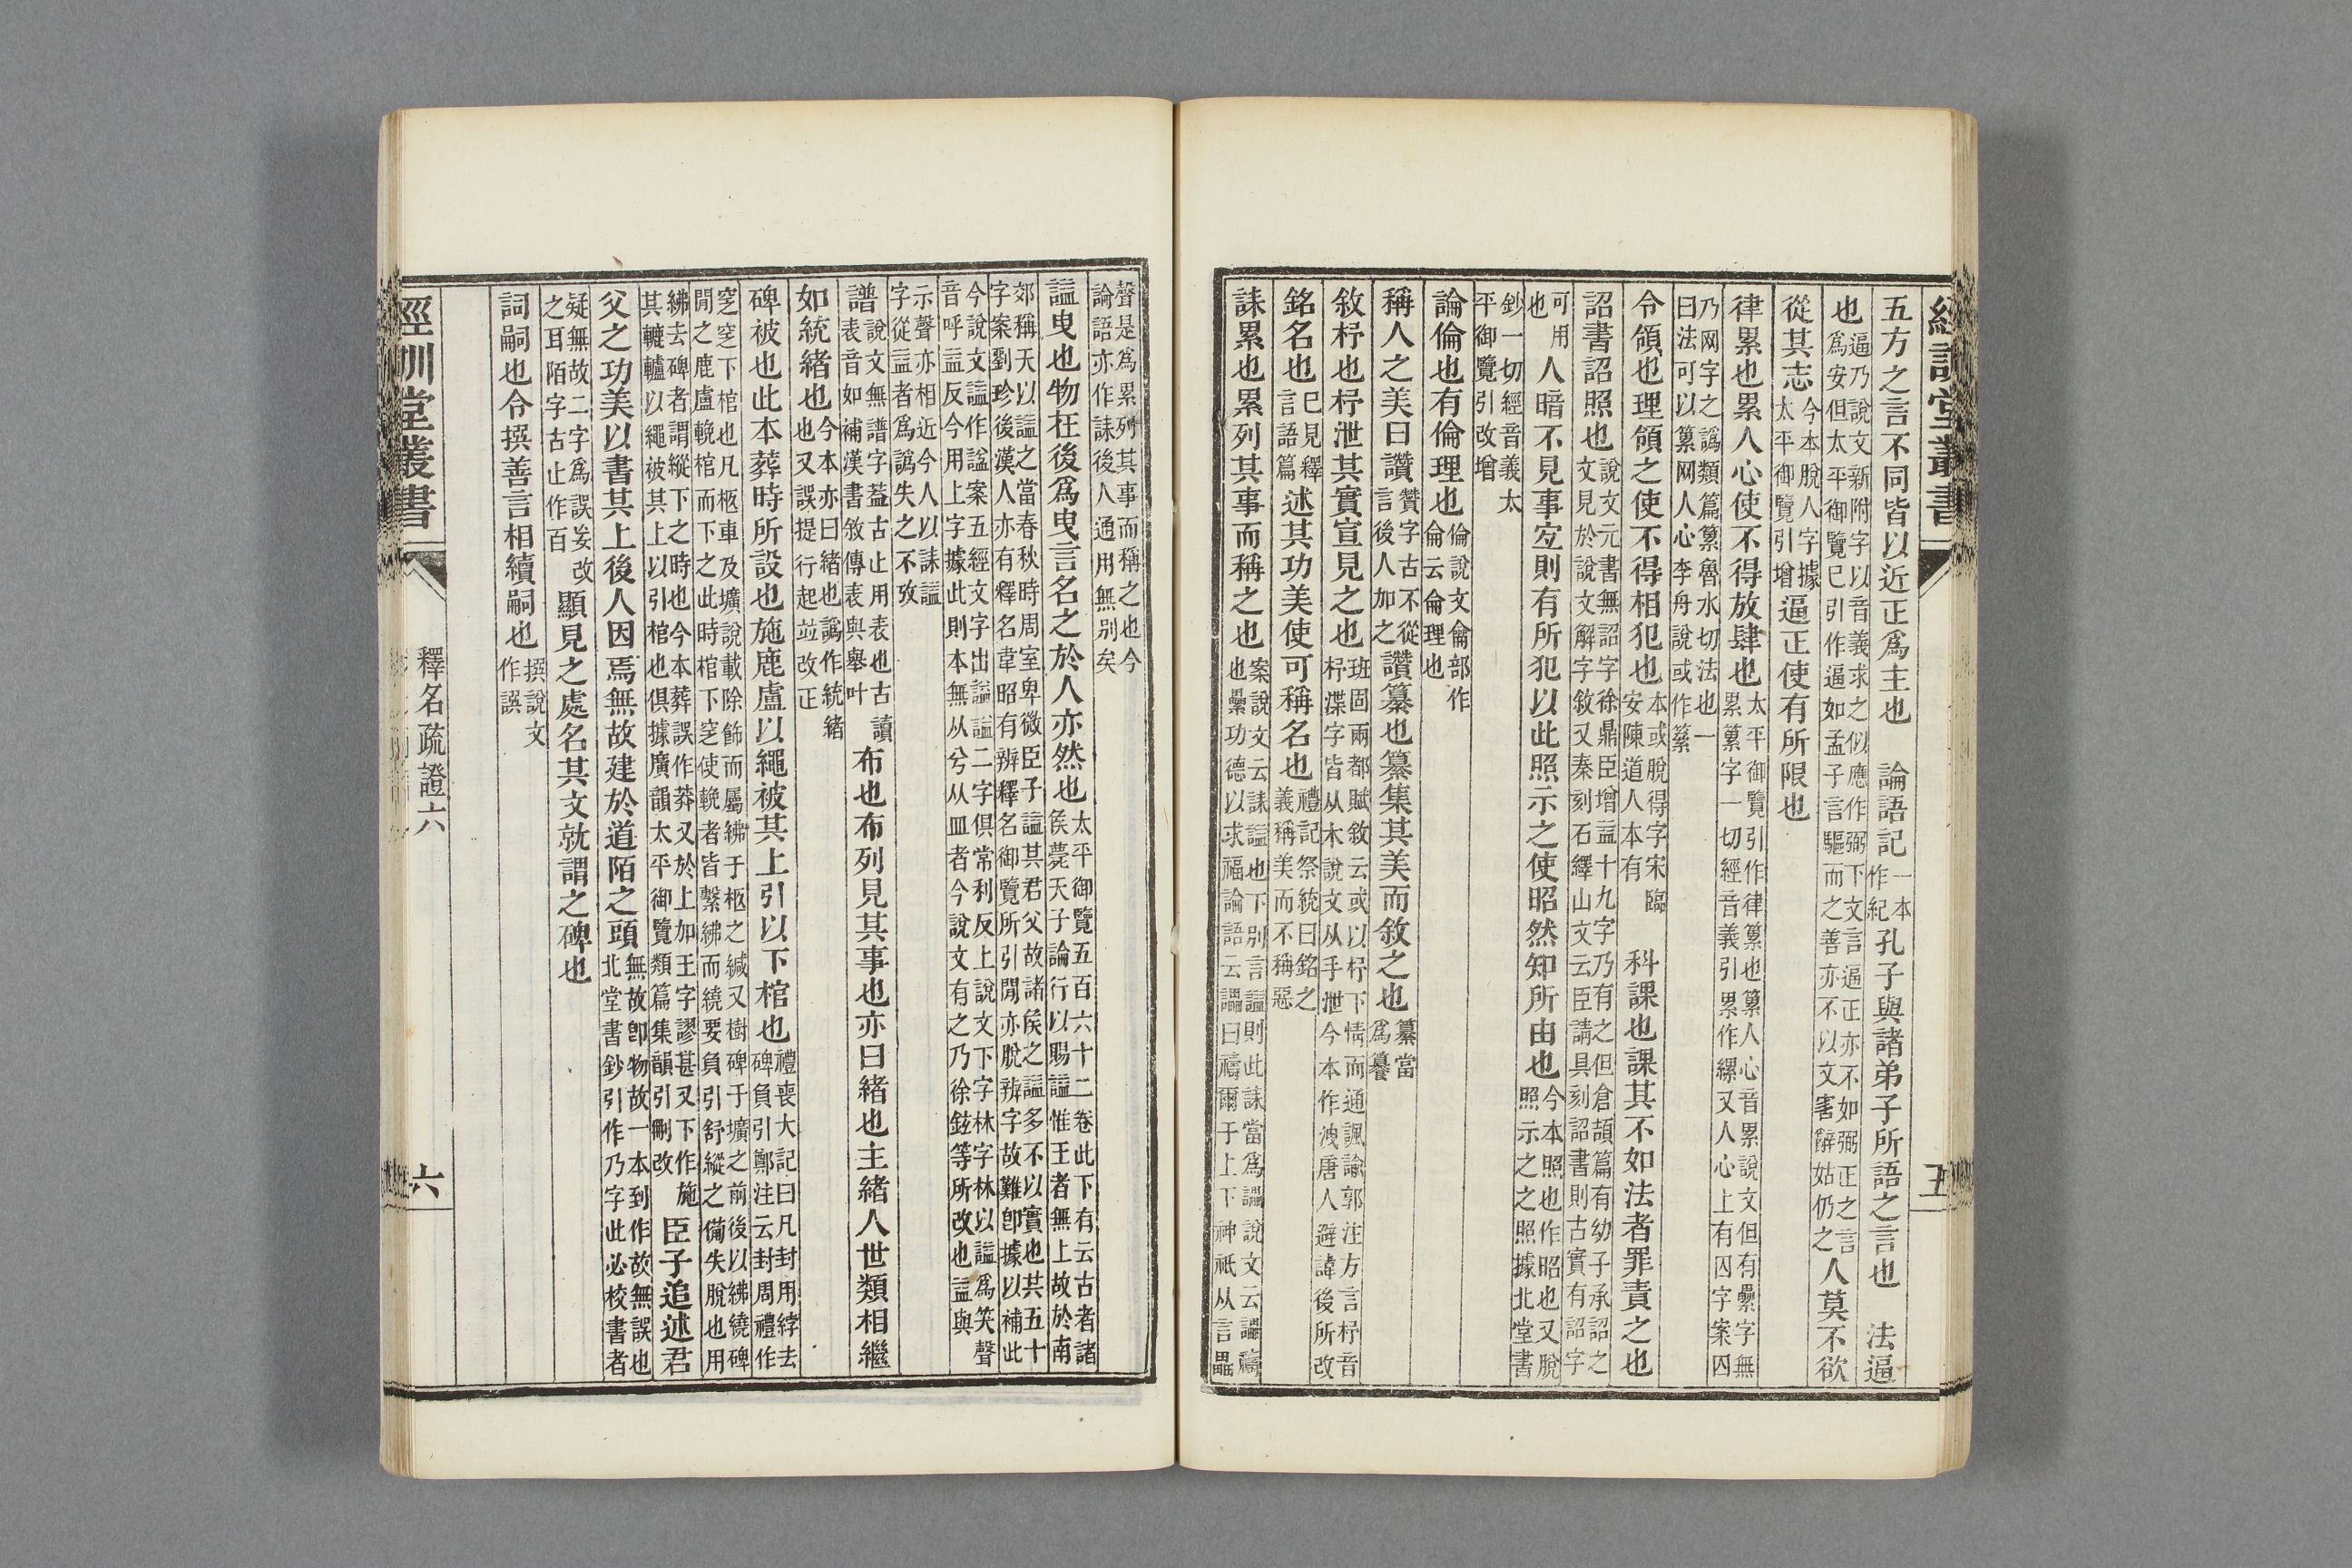 經訓堂叢書
五
五方之言不同皆以近正爲主也　論語記一本作紀孔子與諸弟子所語之言也　法逼
也逼乃說文新附字以音義求之似應作弻下文言逼正亦不如弻正之言爲安但太平御覽已引作逼如孟子言驅而之善亦不以文害辭姑仍之人莫不欲
從其志今本脫人字據太平御覽引增逼正使有所限也
律累也累人心使不得放肆也太平御覽引作律纍也纍人心音累說文但有纍字無累纍字一切經音義引累作縲又人心上有囚字案囚
乃网字之譌類篇纍魯水切法也一曰法可以纍网人心李舟說或作纍
令領也理領之使不得相犯也本或脫得字宋臨安陳道人本有　科課也課其不如法者罪責之也
詔書詔照也說文元書無詔字徐鼎臣增益十九字乃有之但倉頡篇有幼子承詔之文見於說文解字敘又秦刻石繹山文云臣請具刻詔書則古實有詔字
可用也人暗不見事宐則有所犯以此照示之使昭然知所由也今本照也作昭也又脫照示之之照據北堂書
鈔一切經音義太平御覽引改增
論倫也有倫理也倫說文侖部作侖云侖理也
稱人之美曰讚贊字古不從言後人加之讚纂也纂集其美而敘之也纂當爲籑
敘杼也杼泄其實宣見之也班固兩都賦敘云或以杼下情而通諷諭郭注方言杼音杼渫字皆从木說文从手泄今本作洩唐人避諱後所改
銘名也已見釋言語篇述其功美使可稱名也禮記祭統曰銘之義稱美而不稱惡
誄累也累列其事而稱之也案說文云誄諡也下別言諡則此誄當爲讄說文云讄禱也纍功德以求福論語云讄曰禱爾于上下神祇从言畾
聲是爲累列其事而稱之也今論語亦作誄後人通用無別矣
諡曳也物在後爲曳言名之於人亦然也太平御覽五百六十二卷此下有云古者諸侯薨天子論行以賜諡惟王者無上故於南
郊稱天以諡之當春秋時周室卑微臣子諡其君父故諸侯之諡多不以實也共五十字案劉珍後漢人亦有釋名韋昭有辨釋名御覽所引閒亦脫辨字故難卽據以補此
今說文諡作謚案五經文字出謚諡二字俱常利反上說文下字林字林以謚爲笑聲音呼益反今用上字據此則本無从兮从皿者今說文有之乃徐鉉等所改也益與
示聲亦相近今人以誄諡字從益者爲譌失之不攷
譜說文無譜字葢古止用表也古讀表音如補漢書敘傳表與舉叶布也布列見其事也亦曰緒也主緒人世類相繼
如統緒也今本亦曰緒也譌作統緒也又誤提行起竝改正
碑被也此本葬時所設也施鹿盧以繩被其上引以下棺也禮喪大記曰凡封用綍去碑負引鄭注云封周禮作
窆窆下棺也凡柩車及壙說載除飾而屬紼于柩之緘又樹碑于壙之前後以紼繞碑閒之鹿盧輓棺而下之此時棺下窆使輓者皆繫紼而繞要負引舒縱之備失脫也用
紼去碑者謂縱下之時也今本葬誤作莽又於上加王字謬甚又下作施其轆轤以繩被其上以引棺也俱據廣韻太平御覽類篇集韻引刪改臣子追述君
父之功美以書其上後人因焉無故建於道陌之頭無故卽物故一本到作故無誤也北堂書鈔引作乃字此必校書者
疑無故二字爲誤妄改之耳陌字古止作百顯見之處名其文就謂之碑也
詞嗣也令撰善言相續嗣也撰說文作譔
經訓堂叢書
釋名疏證六
六